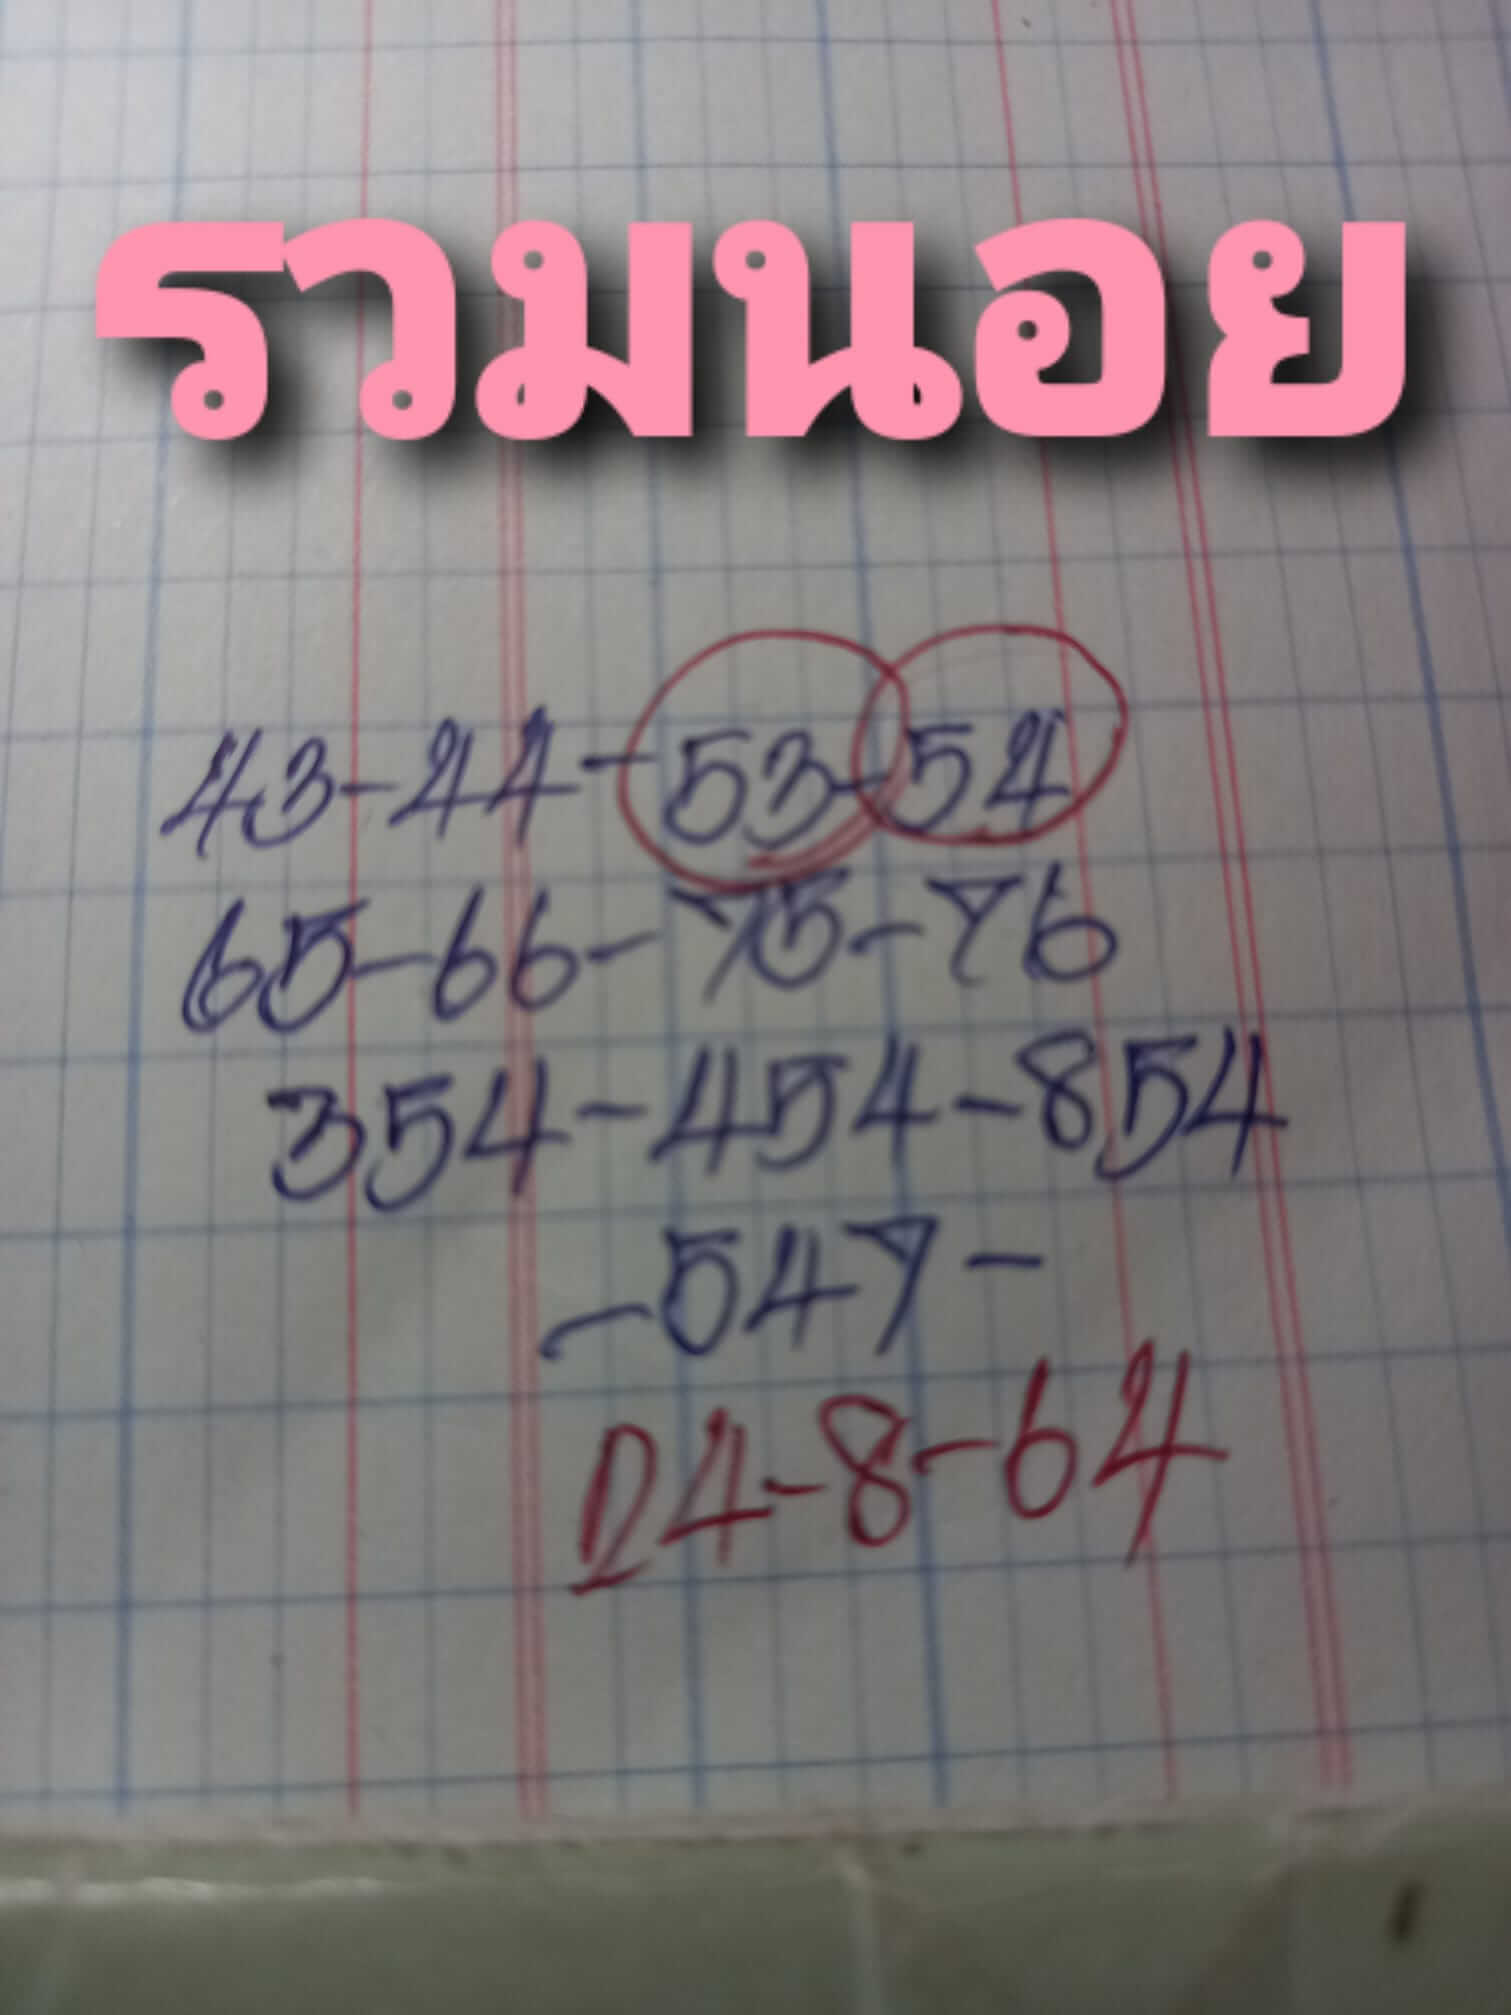 รวมนอย
43-44-53-54
65-66-75-76
354-454-854
-547-
24-8-64